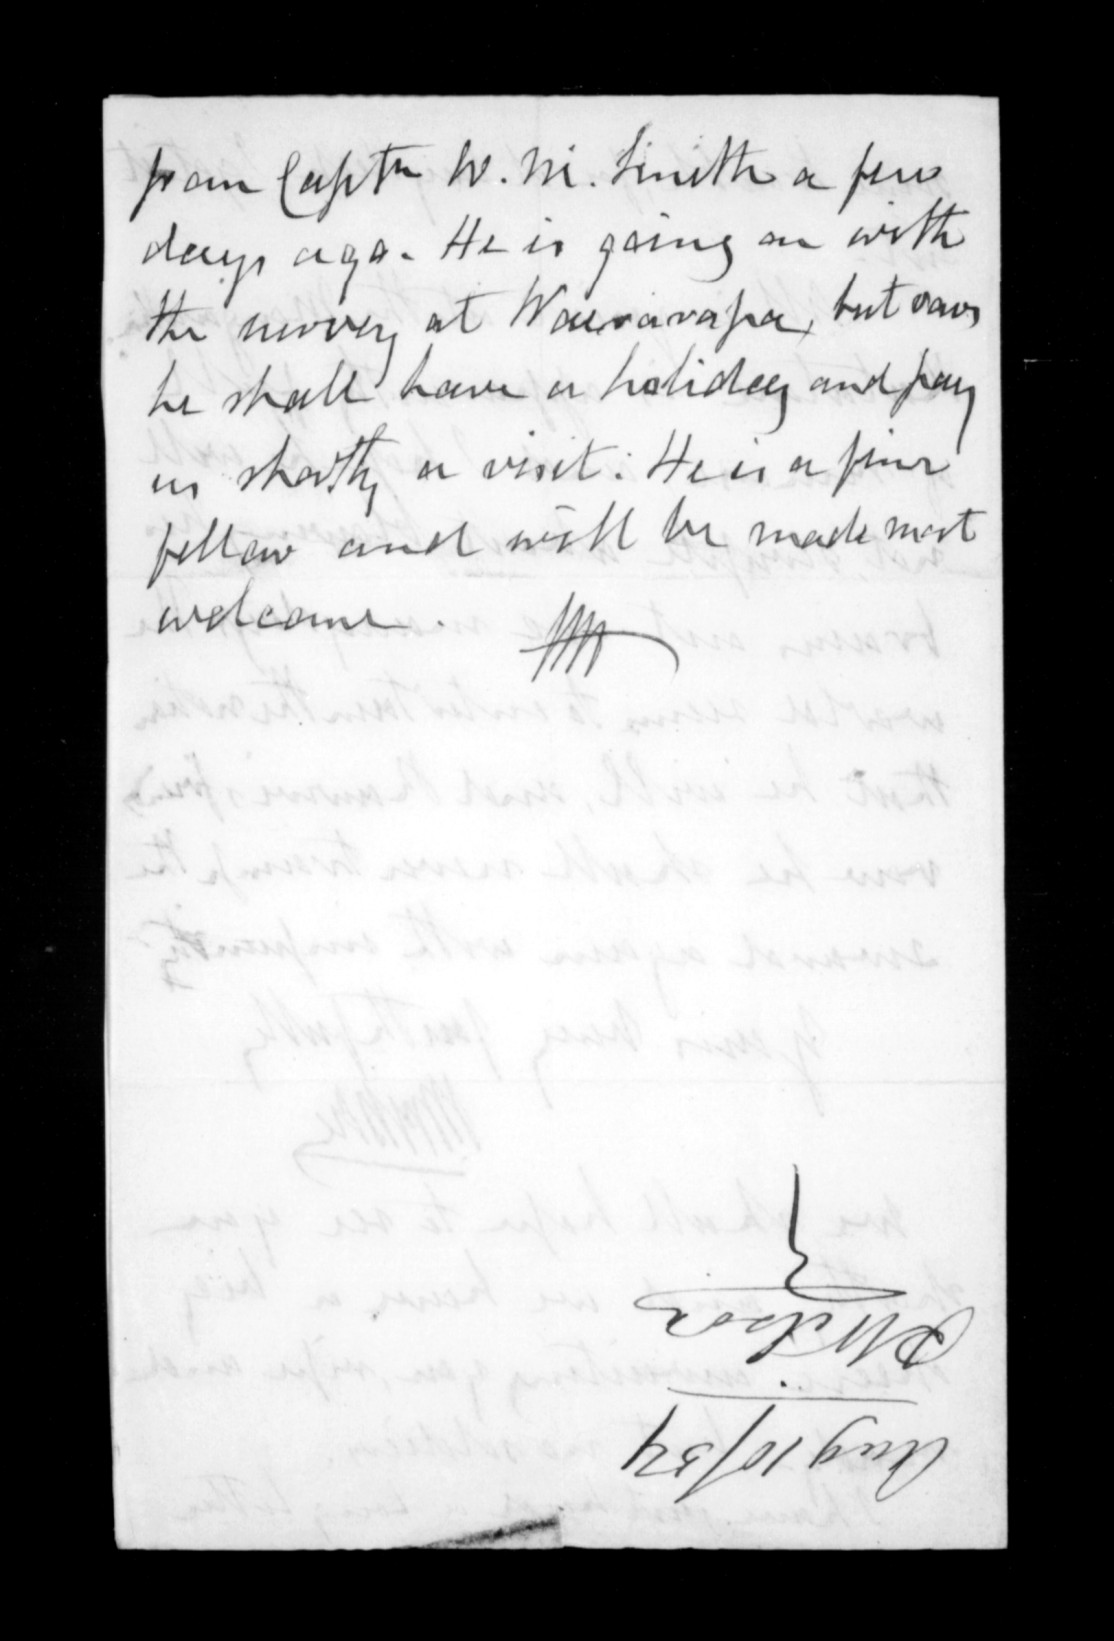 from Captn W. M. Smith a few
days ago. He is going on with
the survey at Wairarapa, but says
he shall have a holiday and pay
us shortly a visit. He is a fine
fellow and will be made most
welcome.
Wilson
Aug 10/54